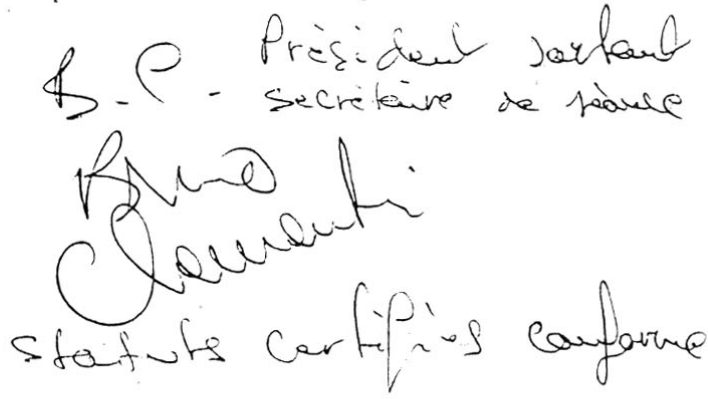 B. C. Président sortant
secrétaire de séance
Bruno
Clementi
Statuts certifiés conforme